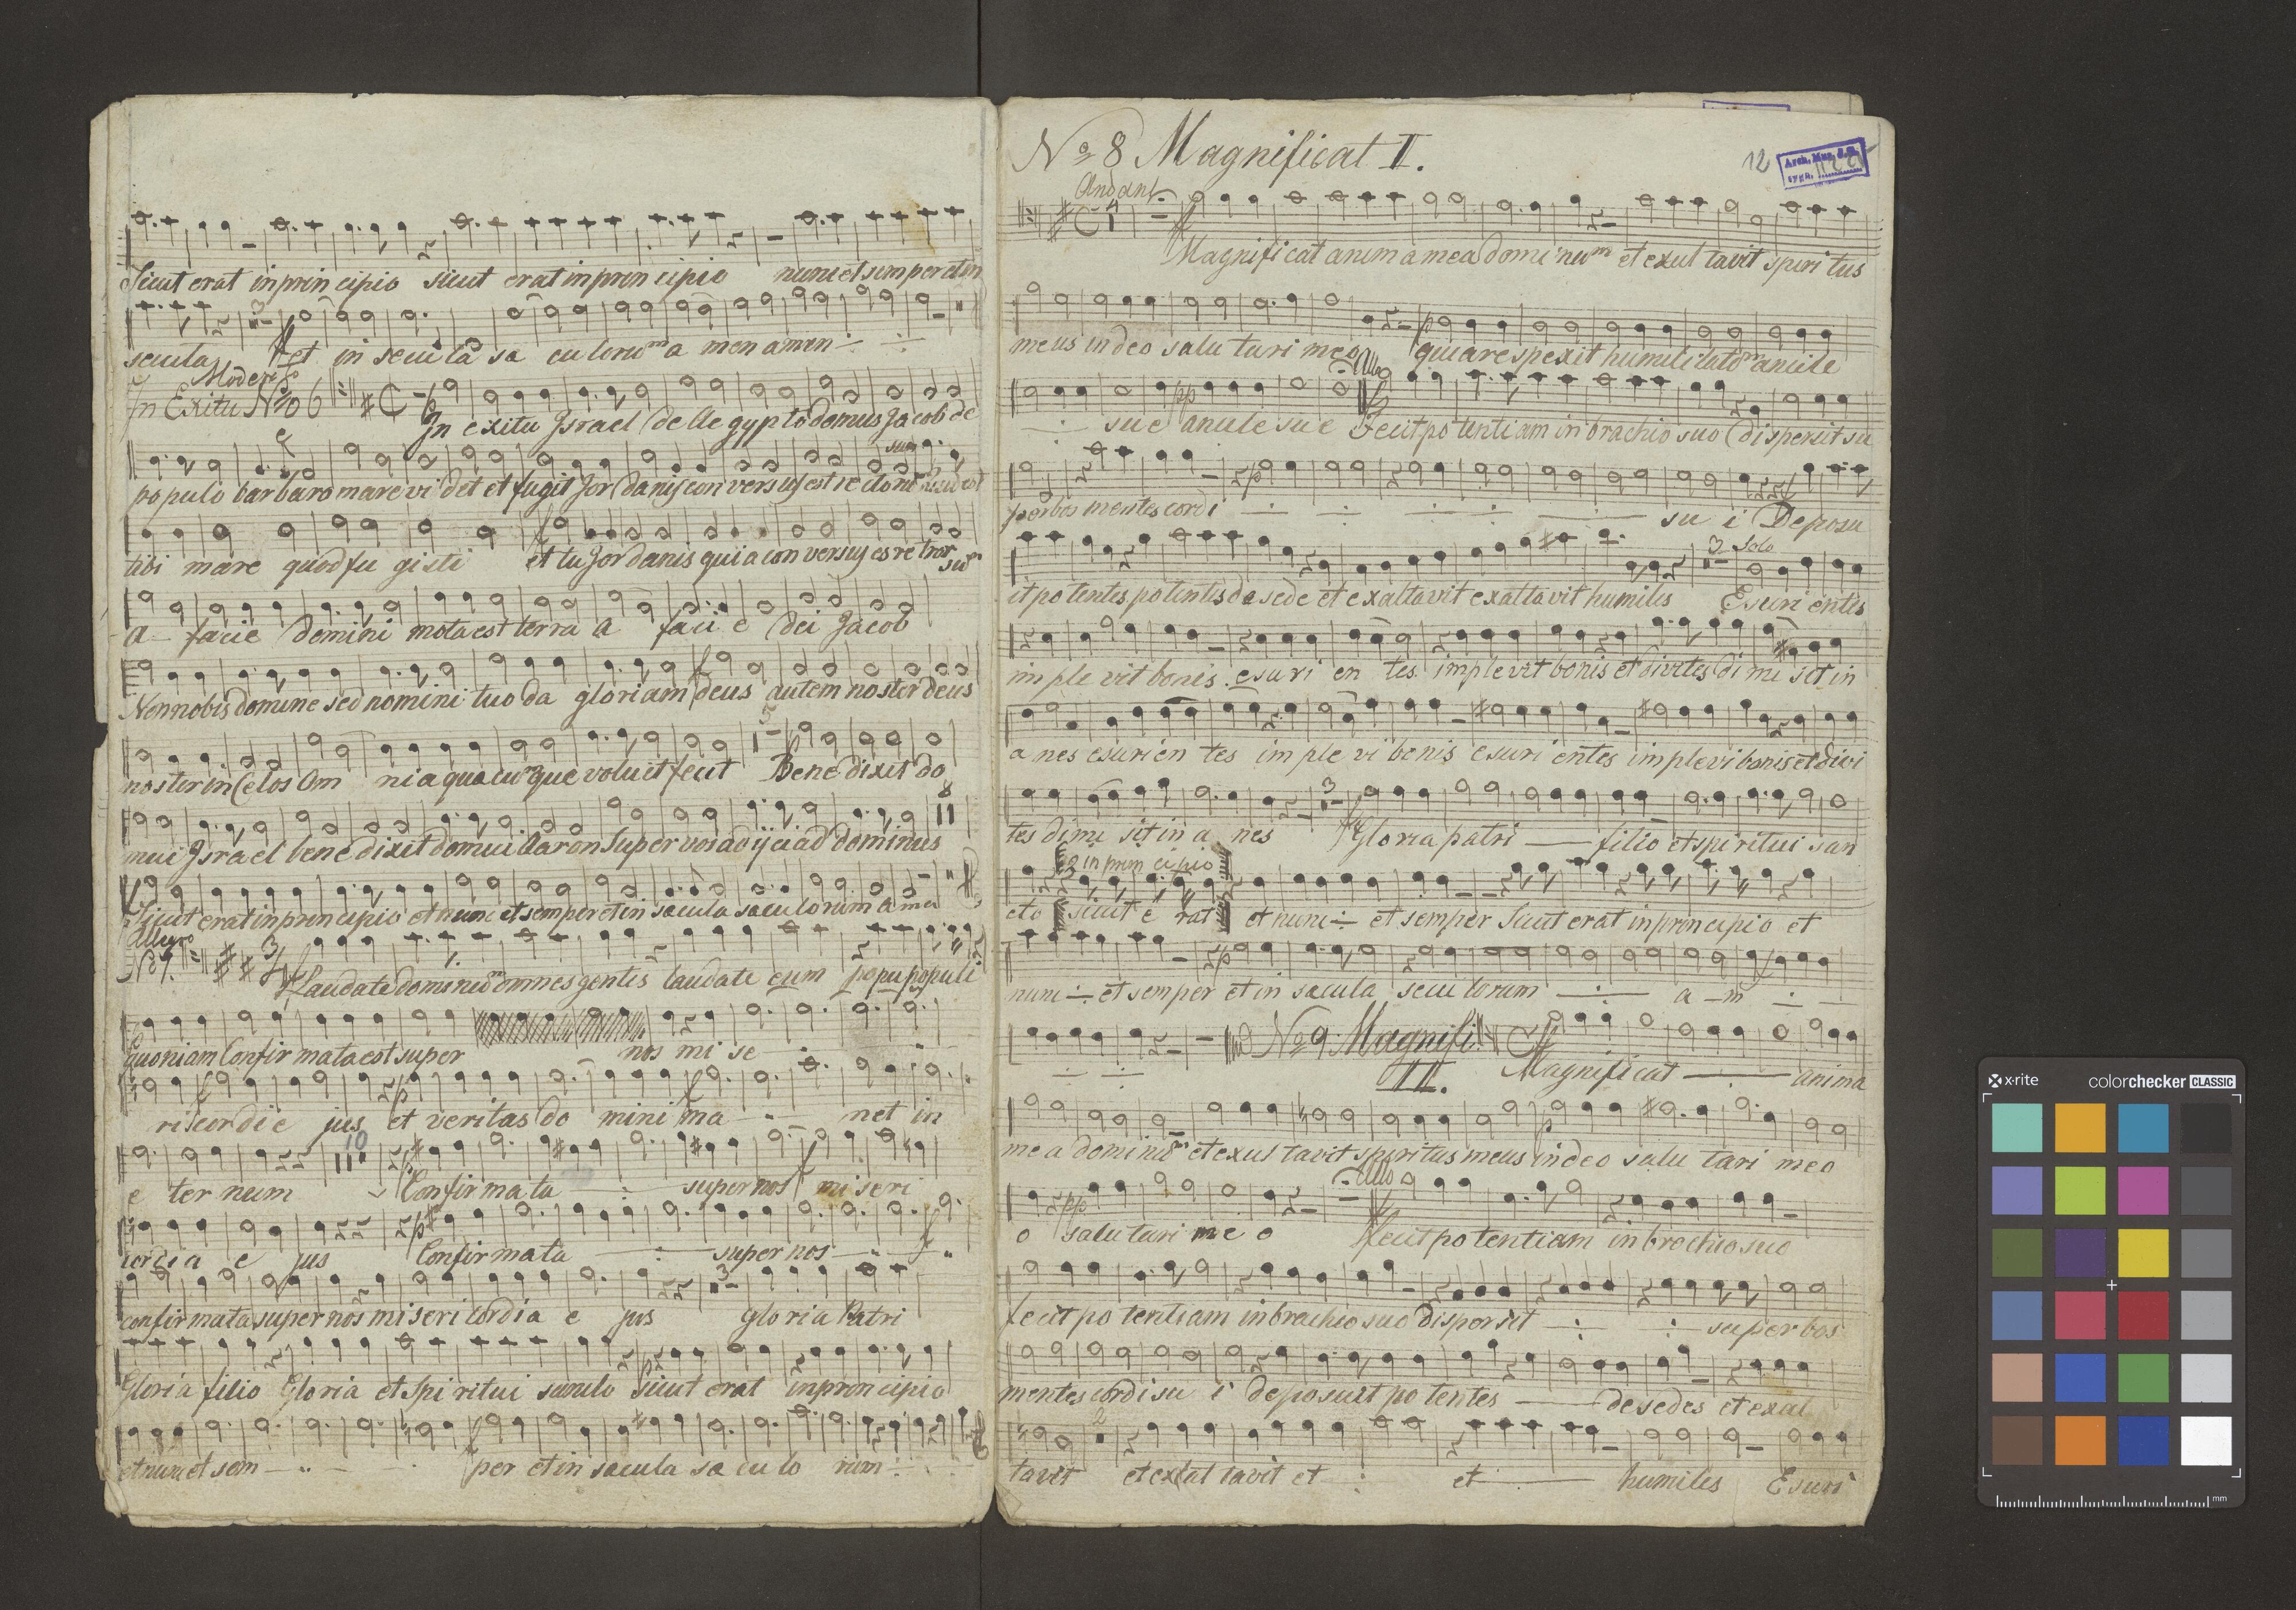 Sicut erat in prin cipio sicut erat in prin cipio nunc et semper et in
3
secula et in secula sa cu loru m a men amen
Moder
In Exitu No 6 C p
In exitu Israel de Ae gypto domus Jacob de
sum
populo barbaro mare vi det et fugit Jor danis con versus est re
tibi mare quod fu gisti et tu Jordanis quia con versus es re tror sum
A facie domini mota est terra a faci e dei Jacob
Non nobis domine sed nomini tuo da gloriam deus autem noster deus
5
noster in Celos Om nia qua cum que voluit fecit Bene dixit do
8
mui Israel bene dixit domui Aaron Super vos ad ijci ad dominus
Sicut erat in prin cipio et nunc et semper et in sacula saculorum a men
Allegro
No 7. 3/4
Laudate dominum omnes gentes laudate eum popu populi
Quoniam Confir mata est super nos mi se
ri scordi e jus et veritas do mini ma net in
10
e ter num Confir mata super nos mi seri
cordi a e jus Confir mata super nos
3
confir mata super nos mi seri cordia e jus gloria Patri
Gloria filio Gloria et Spi ritui sancto sicut erat in prin cipio
et nunc et sem per et in sacula sa cu lo rum
No 8 Magnificat II.
12
Arch. Mus. J.G.
sygn.
Andant
C 4
Magnificat anim a mea domi num et exul tavit spiri tus
meus in deo salu tari meo quia respexit humili tatem ancile
Allo
sue ancile sue Fecit po tentiam in brachio suo dispersit su
perbos mentes cordi su i Deposu
3 Solo
it po tentes potentis de sede et exaltavit exaltavit humiles Esuri entes
im ple vit bonis esuri en tes implevit bonis et divites di mi sit in
a nes esurien tes im ple vi bonis esuri entes implevi bonis et divi
3
tes dimi sit in a nes Gloria patri filio et spiritui san
in prin cipio
cto sicut e rat et nunc et semper Sicut erat in prin cipio et
nunc et semper et in sacula secu lorum a m
No 9 Magnifi C
III. Magnificat anima
me a dominum et exul tavit spiritus meus in deo salu tari meo
Allo
pp
o salu tari me o fecit po tentiam in brachio suo
fecit po tentiam in brachio suo dispersit superbos
mentes cordi su i deposuit po tentes de sedes et exal
2
tavit et exal tavit et et humiles Esuri
x·rite colorchecker CLASSIC
mm